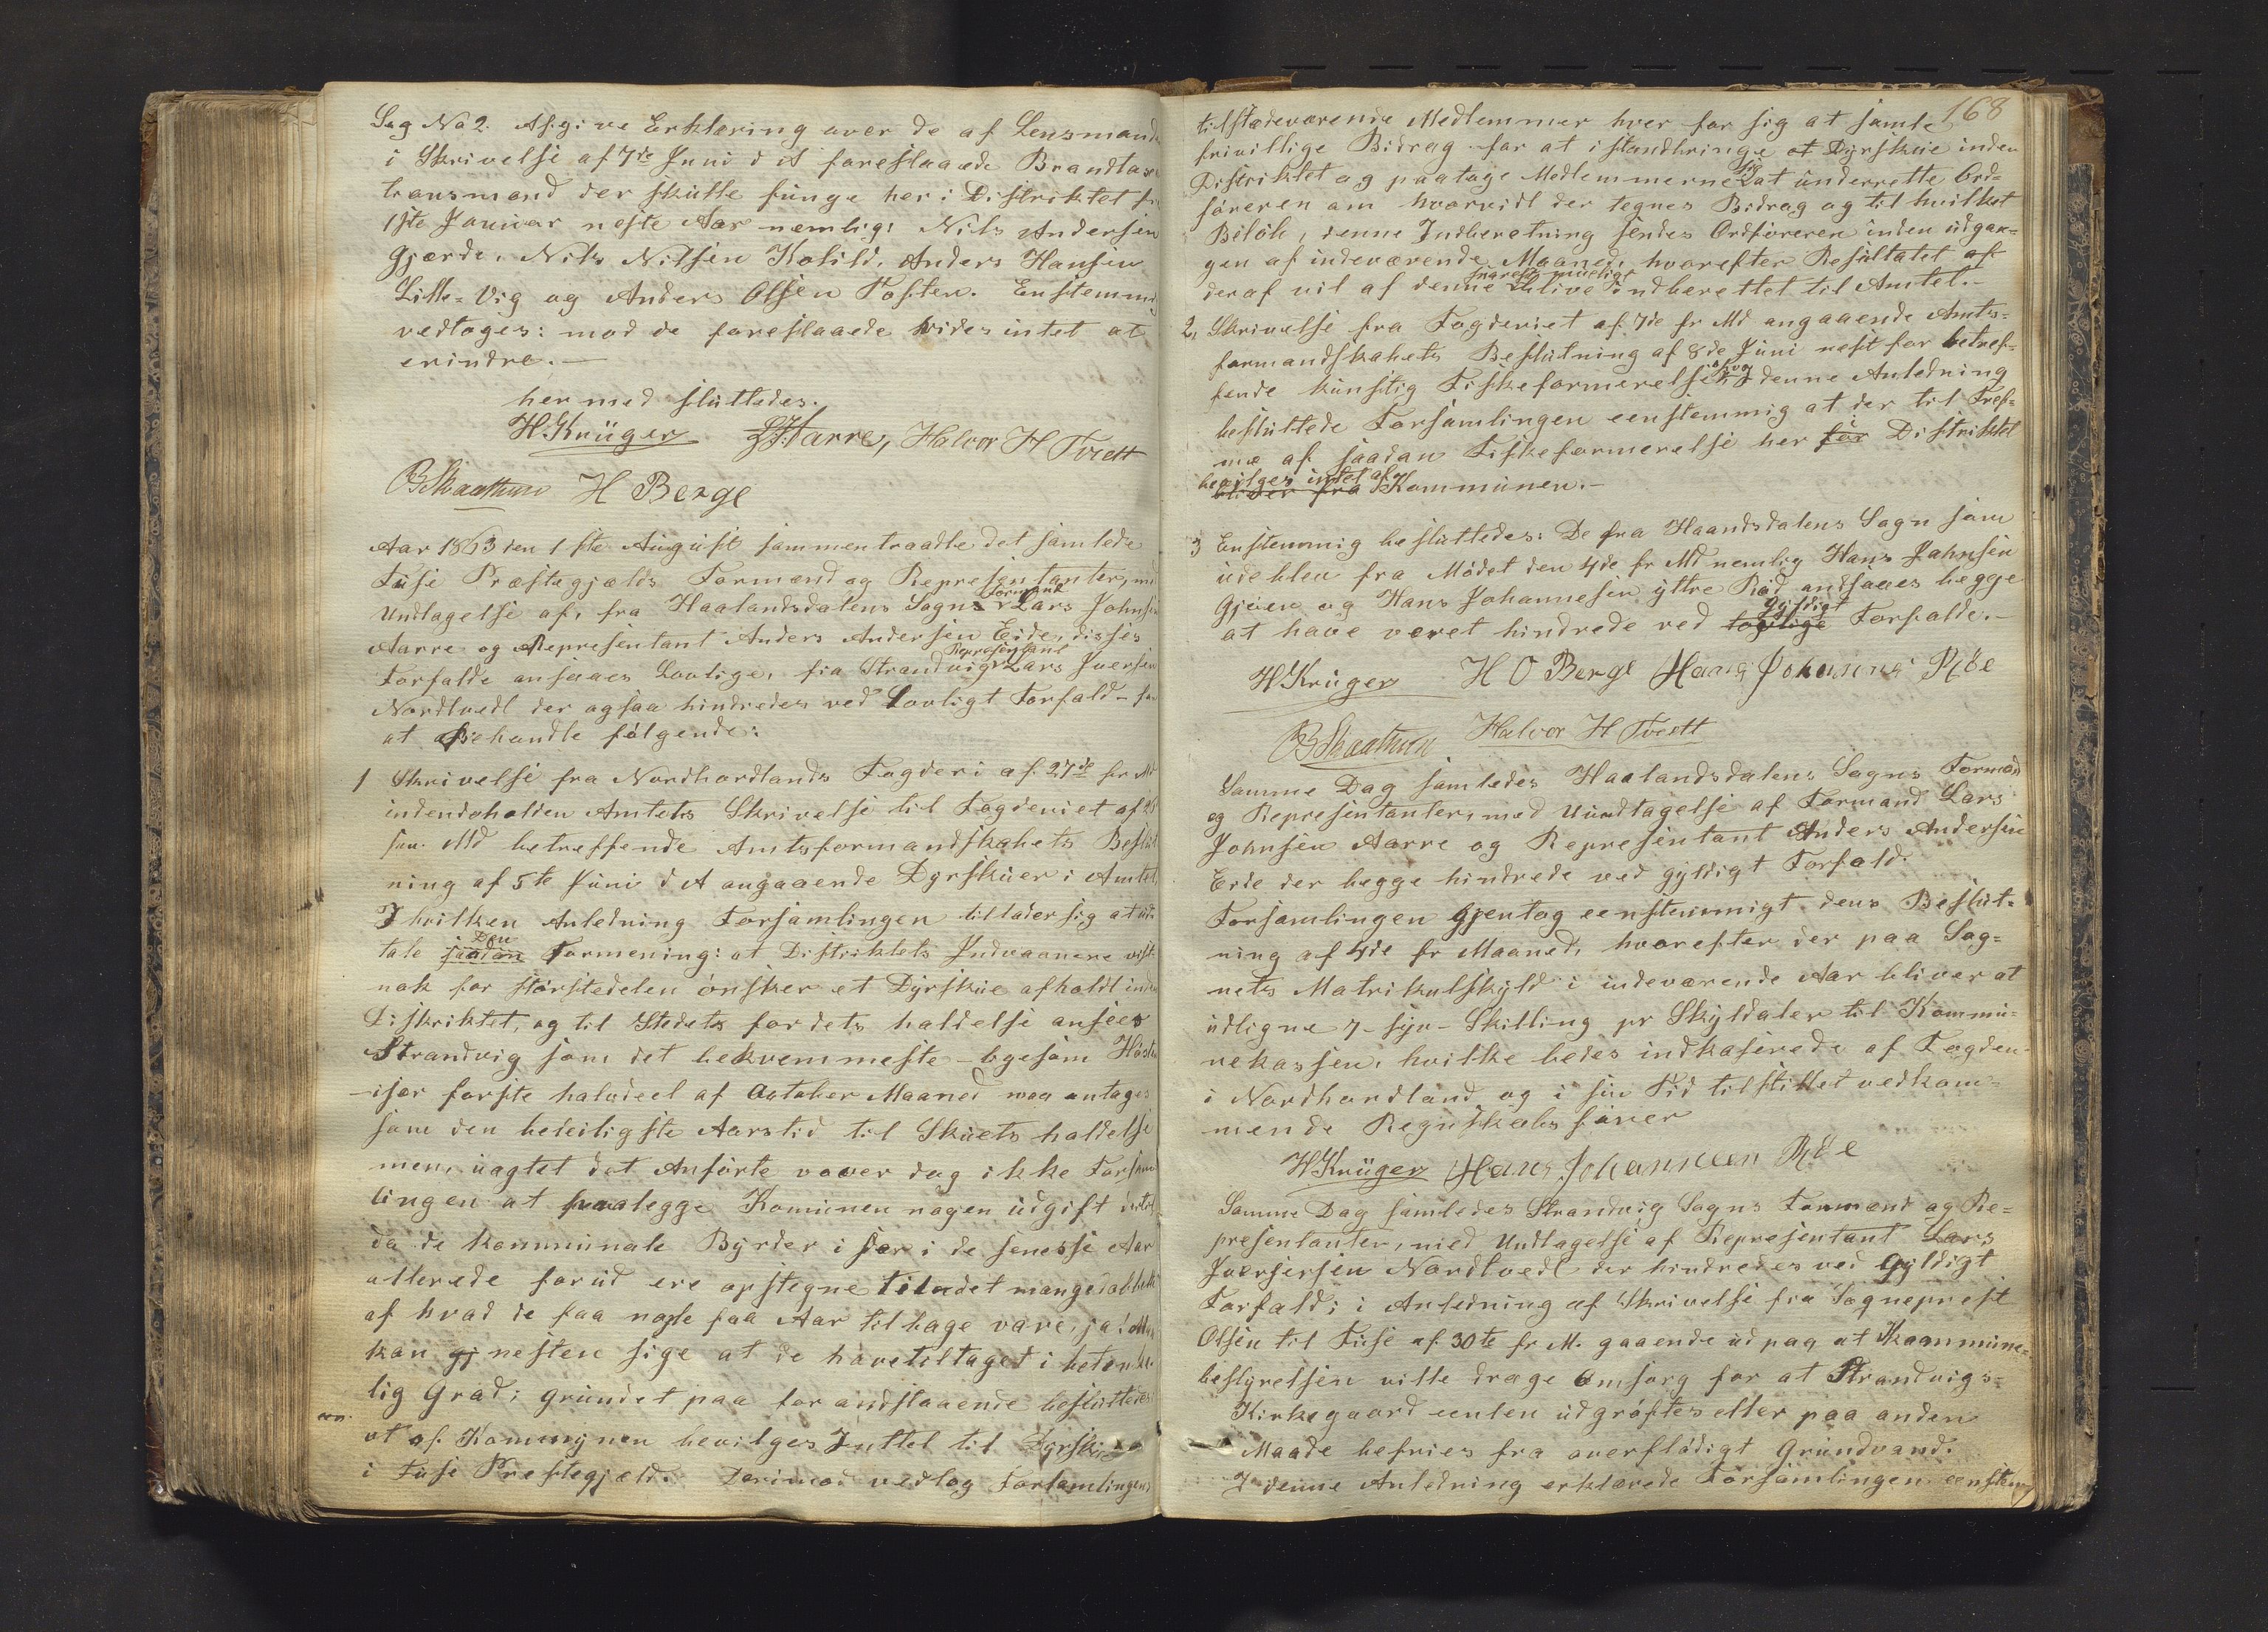 Sag No 2. Afgive Erklæring over de af Lensmand
i Skrivelse af 7de Juni d A foreslaaede Brandtax
transmænd der skulle funge her i Distriktet fra
1ste Januar neste Aar nemlig: Nils Andersen
Gjærde, Nils Nilsen Kolild, Anders Hansen
Lille=Vig og Anders Olsen Tosten. Enstemmig
vedtoges: mod de foreslaaede vides intet at
erindre.—
hermed sluttedes.
H. Krüger LJ Aarre, Halvor H Tvett
B Skaathun H Berge
Aar 1863 den 1ste August sammentraadte det samlede
Fuse Præstegjælds Formænd og Representanter, med
Undtagelse af, fra Haalandsdalens Sogns Formand Lars Johnsen
Aarre og Representant Anders Andersen Eide, disses
Forfalde ansaaes Lovlige, fra Strandvig Representant Lars Iversen
Nordtvedt der ogsaa hindredes ved Lovligt Forfald – for
at Behandle følgende:
1 Skrivelse fra Nordhordlands Fogderi af 27de fr Md
indenholden Amtets Skrivelse til Fogderiet af 21
sm. Md betreffende Amtsformandskabets Beslut
ning af 5te Juni d A angaaende Dyrskuer i Amtet,
I hvilken Anledning Forsamlingen tillader sig at ud
tale saadan Den Formening: at Distriktets Indvaanere vist
nok for størstedelen ønsker et Dyrskue afholdt inden
Distriktet, og til Stedets for dets holdelse ansees
Strandvig som det bekvemmeste – ligesom Høsten
– især første halvdeel af October Maaned maa antages
som den beleiligste Aarstid til Skuets holdelse
men, uagtet det Anførte vover dog ikke Forsam
lingen at paalegge Komunen nogen udgift dertil
da de kommunale Byrder i sær i de seneste Aar
allerede forud ere opstegne til det mangedobbelte
af hvad de faa nogle faa Aar tilbage vare, ja! Man
kan gj nesten sige at de have tiltaget i betenke
lig Grad; grundet paa forandstaaende besluttedes
at af Kommunen bevilges Inttet til Dyrskue
i Fuse Prestegjæld. Derimod vedtog Forsamlingens
168
tilstædeværende Medlemmer hver for sig at samle
frivillige Bidrag for at istandbringe et Dyrskue inden
Distriktet og paatage Medlemmerne sig at underrette Ord=
føreren om hvorvidt der tegnes Bidrag og til hvilket
Beløb, denne Indberetning sendes Ordføreren inden udgan=
gen af indeværende Maaned, hvorefter Resultatet af
deraf vil af denne snarest mueligt blive indberettet til Amtet.–
2, Skrivelse fra Fogderiet af 7de fr Md angaaende Amts=
formandskabets Beslutning af 8de Juni nest for betref=
fende kunstig Fiskeformerelse, og i denne Anledning
besluttede Forsamlingen eenstemmig at der til Frem=
me af saadan Fiskeformerelse her for Distriktet
bevilges intet af
bliver fra Kommunen.–
3 Enstemmig besluttedes: De fra Haandsdalens Sogn som
udeblev fra Mødet den 4de fr Md nemlig Hans Johnsen
Gjøen og Hans Johannesen yttre Rød ansaaes begge
at have været hindrede ved lovlige Gyldigt Forfalde.–
H Krüger H O Berge Hans Johannes Røe
B Skaathun Halvor H Tvett
Samme Dag samledes Haalandsdalens Sogns Formænd
og Representanter, med Uundtagelse af Formand Lars
Johnsen Aarre og Representant Anders Andersen
Eide der begge hindrede ved gyldigt Forfald.
Forsamlingen gjentog eenstemmigt dens Beslut=
ning af 4de fr Maaned, hvorefter der paa Sog=
nets Matrikulskyld i indeværende Aar bliver at
udligne 7– syv – Skilling pr Skyldaler til Kommu=
nekassen, hvilke bedes indkaserede af Fogden
i Nordhordland og i sin Tid tilstillet vedkom=
mende Regnskabsfører
H Krüger Hans Johannesen Røe
Samme Dag samledes Strandvig Sogns Formænd og Re=
presentanter, med Undtagelse af Representant Lars
Iversersen Nordtvedt der hindredes ved Gyldigt
Forfald; i Anledning af Skrivelse fra Sogneprest
Olsen til Fuse af 30te fr M. gaaende ud paa at Kommune=
bestyrelsen ville drage Omsorg for at Strandvigs=
Kirkegaard eenten udgrøftes eller paa anden
Maade befries fra overflødigt Grundvand.
I denne Anledning erklærede Forsamlingen eenstemmig